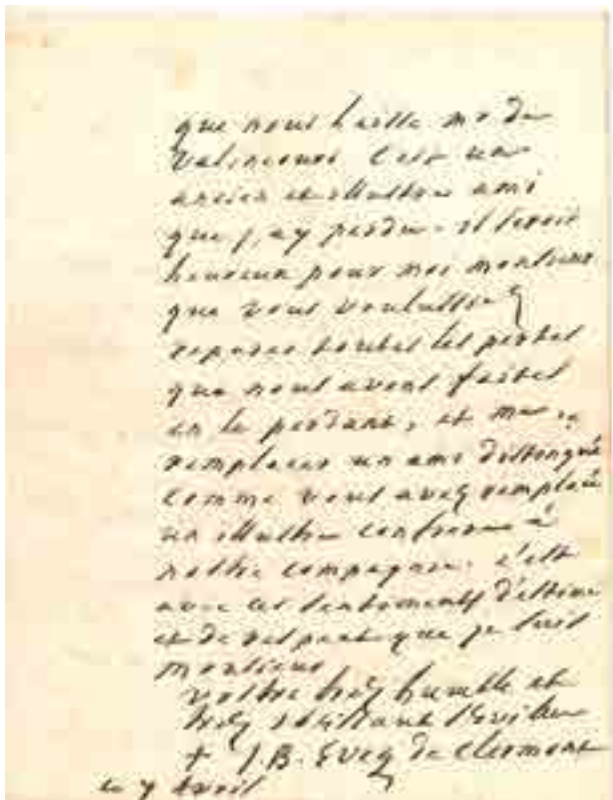 que nous laisse mr de
Valincourt C'est un
ancien et illustre ami
que j'ay perdu. il seroit
heureux pour moi monsieur
que vous voulussiez
reparer toutes les pertes
que nous avons faites
en le perdant, et me
remplacer un ami distingué
comme vous avez remplacé
un illustre confrere à
nostre compagnie. c'est
avec ces sentiments d'estime
et de respect que je suis
monsieur
vostre tres humble et
tres obeissant serviteur
+ J.B. Eveq de Clermont
le 7 avril